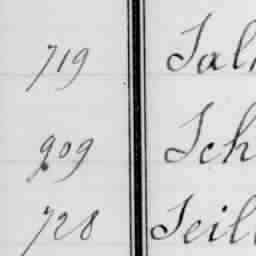 719 Sal
909 Sch
728 Seil